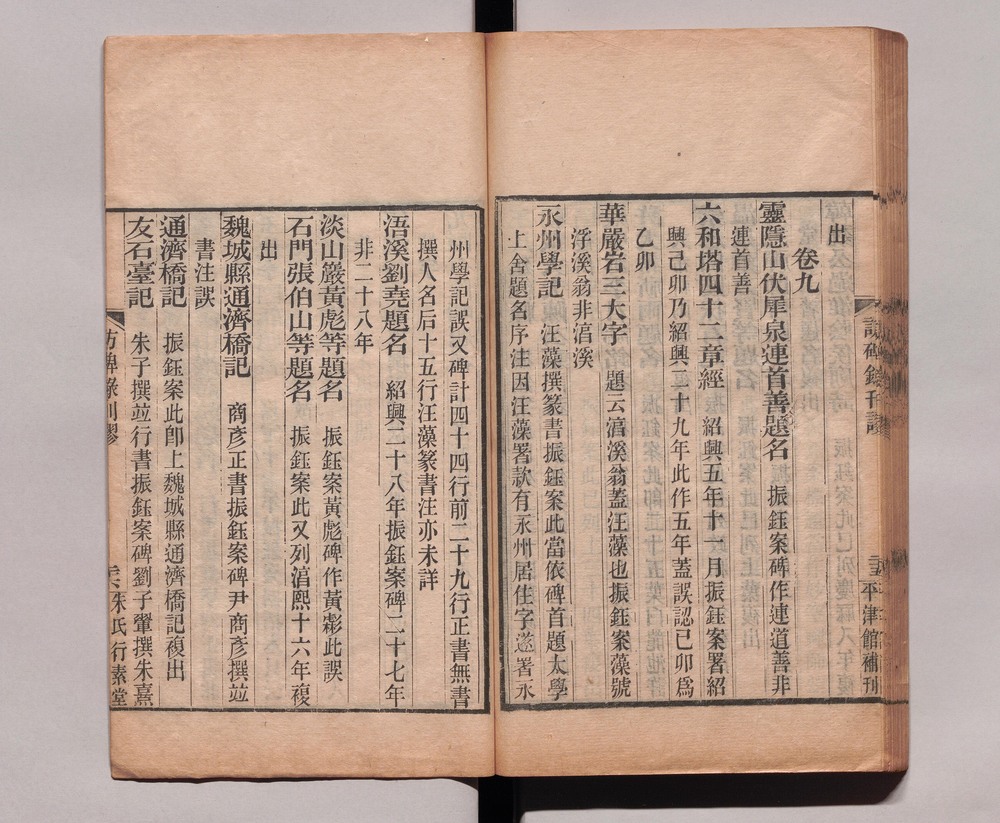 出
卷九
靈隱山伏犀泉連首善題名 振鈺案碑作連道善非
連首善
六和塔四十二章經 紹興五年十一月振鈺案署紹
興己卯乃紹興二十九年此作五年蓋誤認己卯爲
乙卯
華嚴岩三大字 題云湻溪翁蓋汪藻也振鈺案藻號
浮溪翁非湻溪
永州學記 汪藻撰篆書振鈺案此當依碑首題太學
上舍題名序注因汪藻署款有永州居住字遂署永
平津館補刊
州學記誤又碑計四十四行前二十九行正書無書
撰人名后十五行汪藻篆書注亦未詳
浯溪劉堯題名 紹興二十八年振鈺案碑二十七年
非二十八年
淡山巖黃彪等題名 振鈺案黃彪碑作黃彨此誤
石門張伯山等題名 振鈺案此又列湻熙十六年複
出
魏城縣通濟橋記 商彥正書振鈺案碑尹商彥撰竝
書注誤
通濟橋記 振鈺案此卽上魏城縣通濟橋記複出
友石臺記 朱子撰竝行書振鈺案碑劉子翬撰朱熹
朱氏行素堂